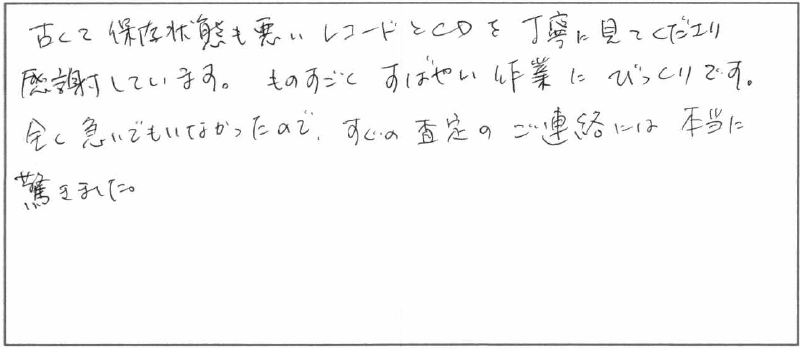 古くて保存状態も悪いレコードとCDを丁寧に見てくださり
感謝しています。ものすごくすばやい作業にびっくりです。
全く急いでもいなかったので、すぐの査定のご連絡には本当に
驚きました。